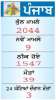 ਪੰਜਾਬ
ਕੁੱਲ ਮਾਮਲੇ
2044
ਨਵੇਂ ਮਾਮਲੇ
9
ਠੀਕ ਹੋਏ
1547
ਮੌਤਾਂ
39
24 ਘੰਟਿਆਂ ਦੌਰਾਨ ਮੌਤਾਂ
3